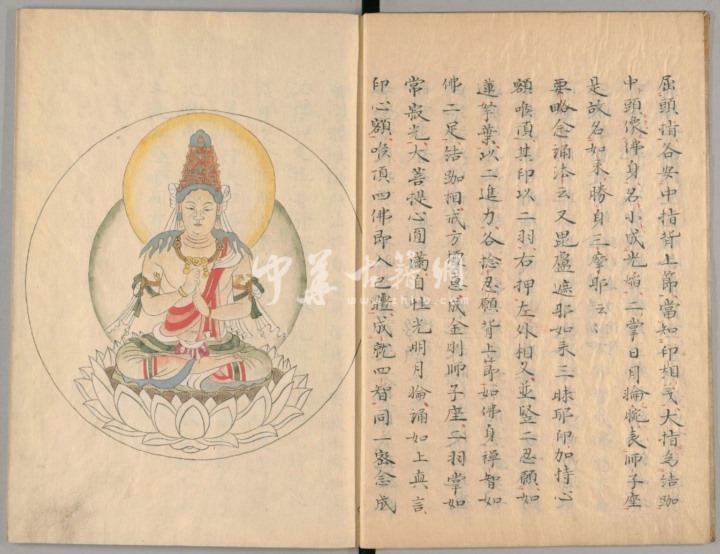 屈頭指各安中指背上節當知印相戈大指為結跏
中頭像佛身名小成光焰二掌日月輪腕表師子座
是故名如来勝身三摩耶云々
要略念誦法云又毘盧遮那如来三昧耶印加持心
額喉頂其印以二羽右押左外相叉並竪二忍願如
蓮挙葉以二進力各捻忍願背上節如佛身禅智如
佛二足結跏相戒方 息成金剛師子座二羽掌如
常寂光大菩提心圓滿自性光明月輪誦如上真言
印心額喉頂四佛即入己軆成就四智同一密念成
中華古籍網
www.zhgjw.com